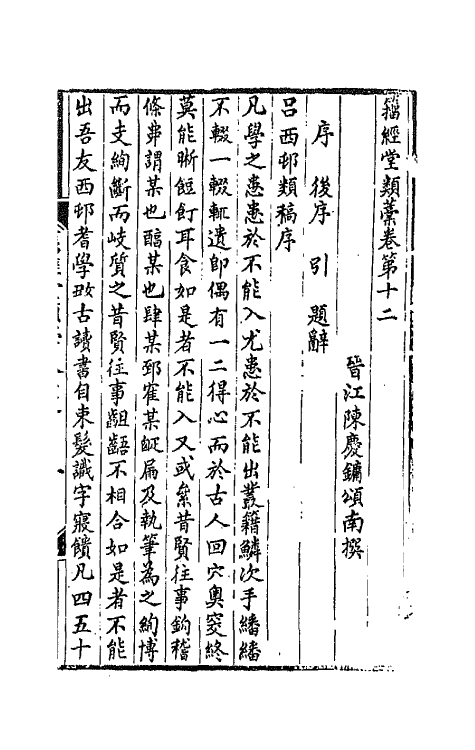 籀經堂類藁卷第十二
晉江陳慶鏞頌南撰
序　後序　引　題辭
呂西邨類稿序
凡學之患患於不能入尤患於不能出叢籍鱗次手繙繙
不輟一輟輒遺即偶有一二得心而於古人回穴奧窔終
莫能晰飣餖耳食如是者不能入又或絫昔賢往事鉤稽
條弗謂某也醇某也肆某郅隺某扁及執筆為之絢博
而支絢斷而岐質之昔賢往事齟齬不相合如是者不能
出吾友西邨耆學攷古讀書自束髮識字寢饋凡四五十